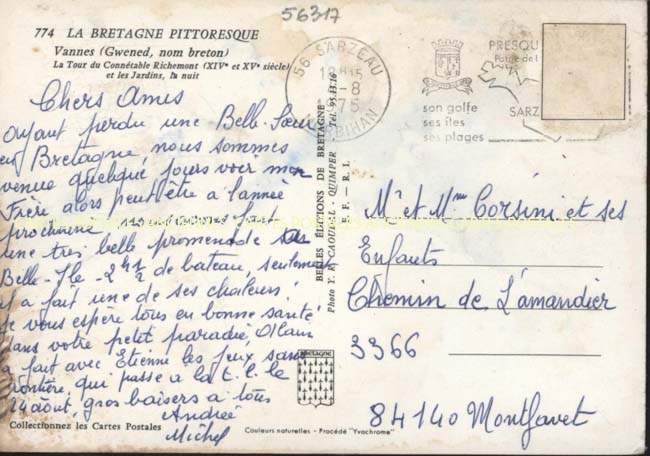 56317
774 LA BRETAGNE PITTORESQUE
Vannes (Gwened, nom breton)
La Tour du Connétable Richemont (XIVe et XVe siècle)
et les Jardins, la nuit
Chers Amis
Ayant perdu une Belle-Sœur
en Bretagne, nous sommes
venue quelques jours voir mon
Frère alors peut être a l'année
prochaine nous venons fait
une très belle promenade sur
Belle-Ile 2h½ de bateau, seulement
il a fait une de ses chaleurs!
Je vous espère tous en bonne santé
dans votre petit paradis, Alain
a fait avec Etienne les jeux sans
frontière, qui passe a la t.e.le le
24 août, gros baisers a tous
Andrée
Michel
Collectionnez les Cartes Postales
BELLES ÉDITIONS DE BRETAGNE
Photo Y. R. CAOUDAL - QUIMPER - Tél. 95.33.16
E. F. - R. I.
BRETAGNE
Couleurs naturelles - Procédé "Yvachrome"
56 SARZEAU
18H15
-8
1975
MORBIHAN
PRESQU
son golfe
ses îles
ses plages
SARZ
Mr et Mme Corsini et ses
Enfants
Chemin de L'amandier
3366
84140 Montfavet